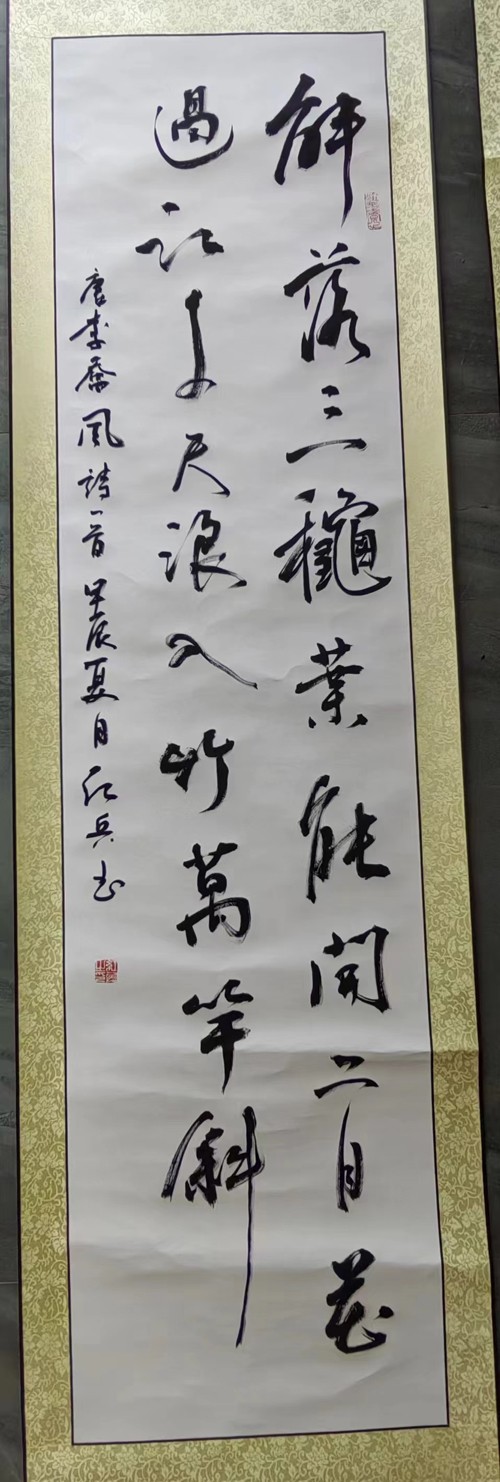 解落三龝葉能開二月花
過江千尺浪入竹萬竿斜
唐李嶠風詩一首甲辰夏月红兵书